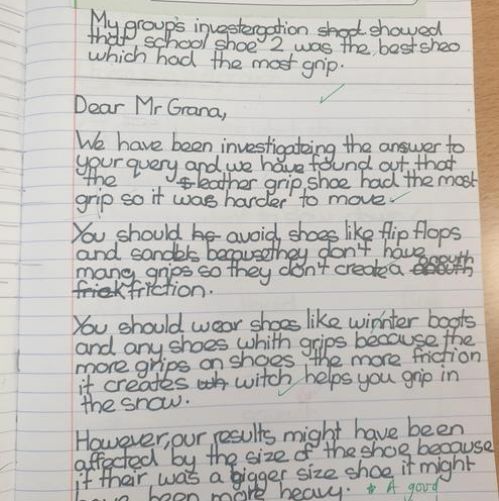 My group's investergation shoot showed
that school shoe 2 was the best sheo
which had the most grip.
Dear Mr Grana,
We have been investigateing the answer to
your query and we have found out that
the leather grip shoe had the most
grip so it was harder to move.
You should he avoid shoes like flip flops
and sandels because they don't have
many grips so they don't create a
frick friction.
You should wear shoes like winnter boots
and any shoes whith grips because the
more grips on shoes the more friction
it creates wh witch helps you grip in
the snow.
However, our results might have been
affected by the size of the shoe because
if their was a bigger size shoe it might
have been more heavy. * A good